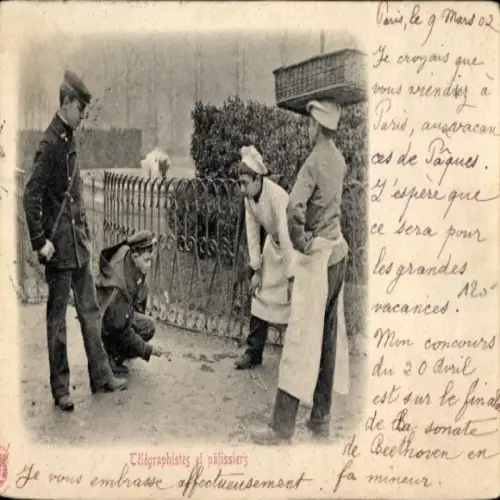 Paris, le 9 Mars 02
Je croyais que
vous viendiez à
Paris, aux vacan
ces de Pâques.
J'espère que
ce sera pour
les grandes
vacances.
Mon concours
du 20 Avril
est sur le final
de la sonate
de Beethoven en
fa mineur.
Télégraphistes et pâtissiers
Je vous embrasse affectueusement.